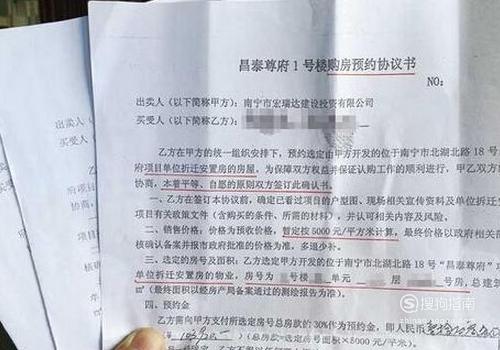 昌泰尊府1号楼购房预约协议书
NO:
出卖人（以下简称甲方）：南宁市宏瑞达建设投资有限公司
买受人（以下简称乙方）：
乙方在甲方的统一组织安排下，预约选定由甲方开发的位于南宁市北湖北路18号
府项目单位拆迁安置房的房屋，为保障双方权益并保证认购工作的顺利进行，甲乙双方
协商，本着平等、自愿的原则双方签订此确认书。
一、乙方在签订本协议前，确定已看过项目的户型图、现场相关宣传资料及单位拆迁安
项目有关政策文件（含购买的条件、所需的材料），并认可相关内容及风险。
二、销售价格：价格为预收价格，暂定按5000元/平方米计算，最终价格以政府相关部
核确认备案并报市政府批准的价格为准，多退少补。
三、选定的房号及面积：乙方选定甲方开发的位于南宁市北湖北路18号“昌泰尊府”项
单位拆迁安置房的物业，房号为 号楼 单元 层 号房，总建筑
㎡（最终面积以经房产局备案通过的测绘报告为准）。
四、预约金
乙方需向甲方支付所选定房号总房款的30%作为预约金，即人民币
（总房款=选定房号面积×5000元/平方米）
搜狗指南
zhinan.sogou.com